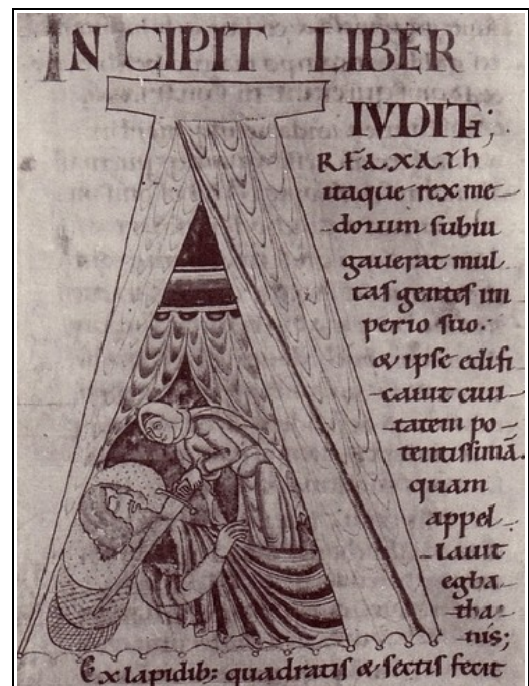 INCIPIT LIBER
IVDITH;
A
RFAXATH
itaque rex me
dorum subiu
gauerat mul
tas gentes im
perio suo.
& ipse edifi
cauit ciui
tatem po
tentissimā.
quam
appel
lauit
egba
tha
nis;
Ex lapidib; quadratis & sectis fecit